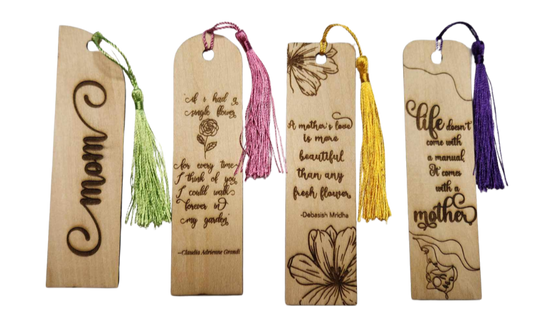 mom
"If I had a
single flower
for every time
I think of you,
I could walk
forever in
my garden"
-Claudia Adrienne Grandi
A mother's love
is more
beautiful
than any
fresh flower.
-Debasish Mridha
life doesn't
come with
a manual
It comes
with a
mother